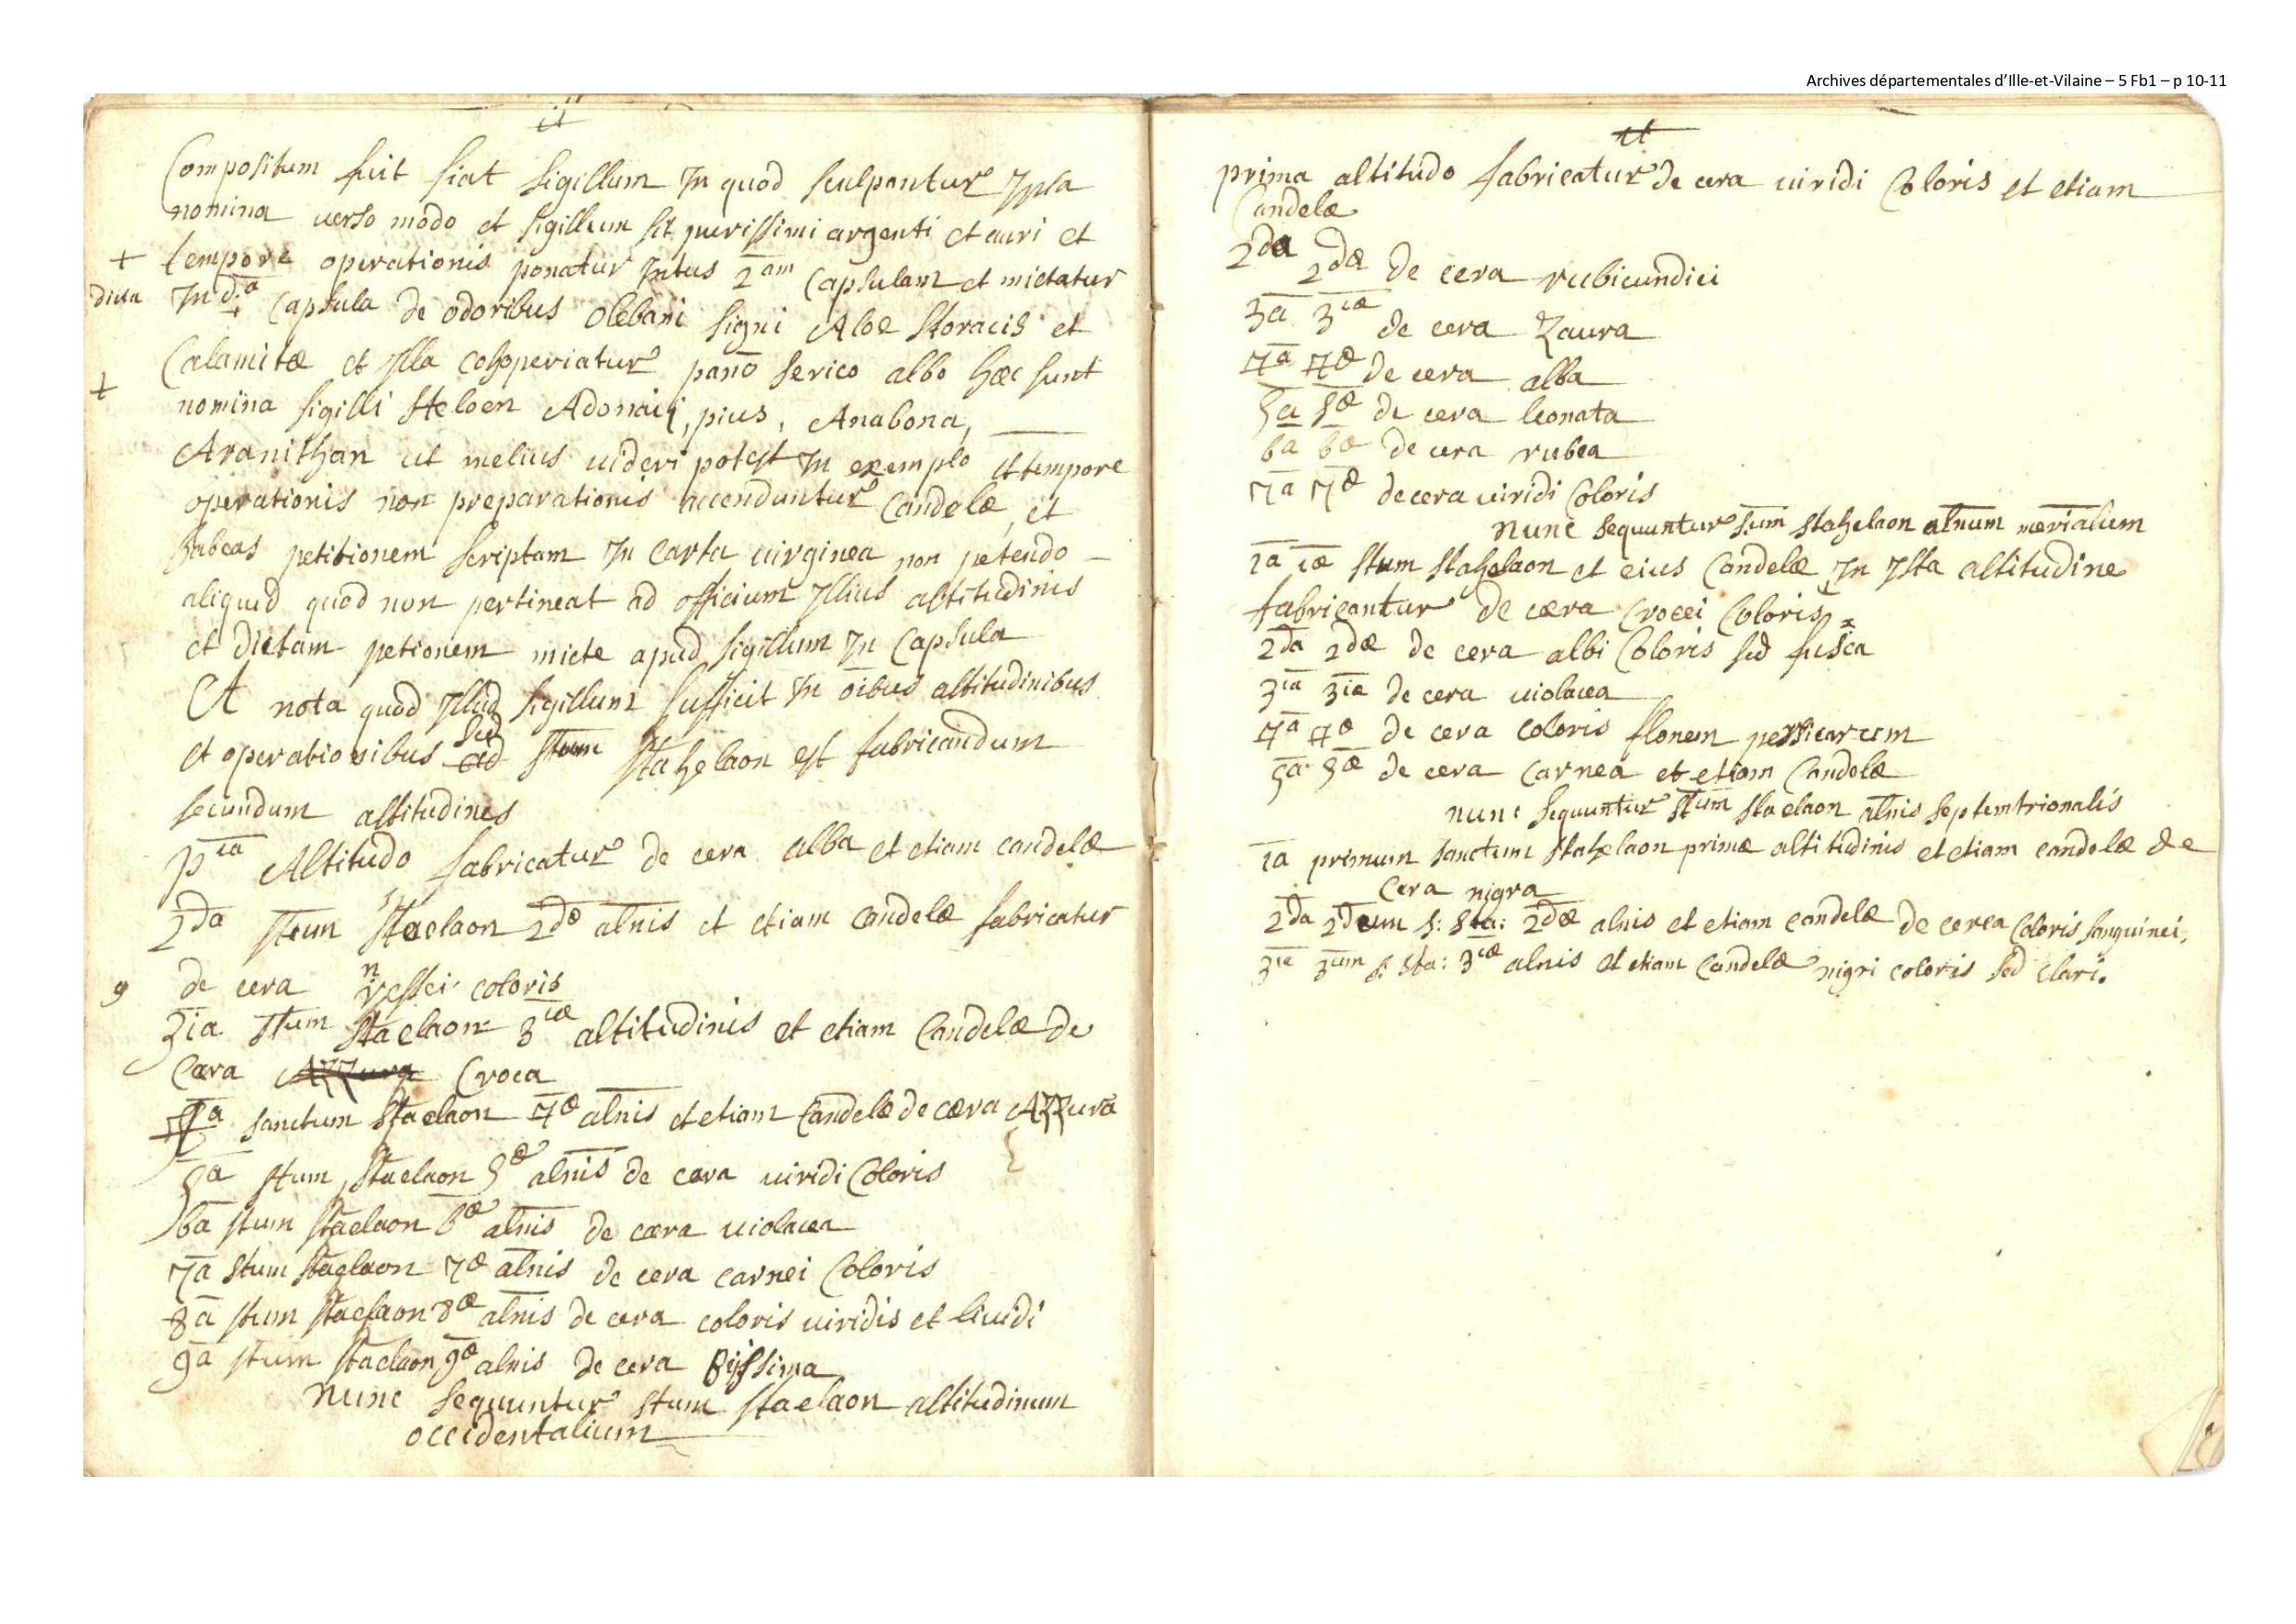 Archives départementales d'Ille-et-Vilaine – 5 Fb1 – p 10-11
Compositum fuit fiat sigillum In quod sculpantur Ipsa
nomina verso modo et sigillum sit purissimi argenti et auri et
+ tempore operationis ponatur Intus 2am Capsulam et mictatur
dicta In d:a Capsula de odoribus olebani ligni Aloe storacis et
Calamitæ et Illa cohoperiatur pano serico albo hæc sunt
+ nomina sigilli Heloen Adonaij, pius, Anabona,
Aranithan ut melius uideri potest In exemplo et tempore
operationis non preparationis accenduntur Candelæ, et
habeas petitionem scriptam In carta uirginea non petendo
aliquid quod non pertineat ad officium Illius altitudinis
et dictam petionem micte apud sigillum In Capsula
Et nota quod Illud sigillum sufficit In oibus altitudinibus
et operationibus sed stum stahelaon est fabricandum
secundum altitudines
pia Altitudo fabricatur de cera alba et etiam candelæ
2da stum staelaon 2dæ alnis et etiam candelæ fabricatur
9 de cera ressei coloris
3ia stum staelaon 3iæ altitudinis et etiam Candelæ de
Cæra Azzura Croca
4a sanctum staelaon 4æ alnis et etiam Candelæ de cæra Azzura
5a stum staelaon 5æ alnis de cæra uiridi Coloris
6a stum staelaon 6æ alnis de cæra uiolacea
7a stum staelaon 7æ alnis de cera carnei Coloris
8a stum staelaon 8æ alnis de cera coloris uiridis et liuidi
9a stum staelaon 9æ alnis de cera
Nunc sequuntur stum staelaon altitudinum
occidentalium
prima altitudo fabricatur de cera uiridi Coloris et etiam
Candelæ
2da 2dæ de cera rubicundici
3a 3iæ de cera Zaura
4a 4æ de cera alba
5a 5æ de cera leonata
6a 6æ de cera rubea
7a 7æ de cera uiridi Coloris
Nunc sequuntur s:um stahelaon alnum merialum
1a 1æ stum stahelaon et eius Candelæ In Ista altitudine
fabricantur de cæra Crocei Coloris
2da 2dæ de cera albi Coloris sed fusca
3ia 3iæ de cera uiolacea
4a 4æ de cera coloris florum persicarum
5a 5æ de cera Carnea et etiam Candelæ
nunc sequuntur stum staelaon alnis septemtrionalis
1a primum sanctum stahelaon primæ altitudinis et etiam candelæ de
Cera nigra
2da 2dum s: sta: 2dæ alnis et etiam candelæ de cerea Coloris sanguinei,
3ia 3um s: sta: 3iæ alnis et etiam Candelæ nigri coloris sed clari.